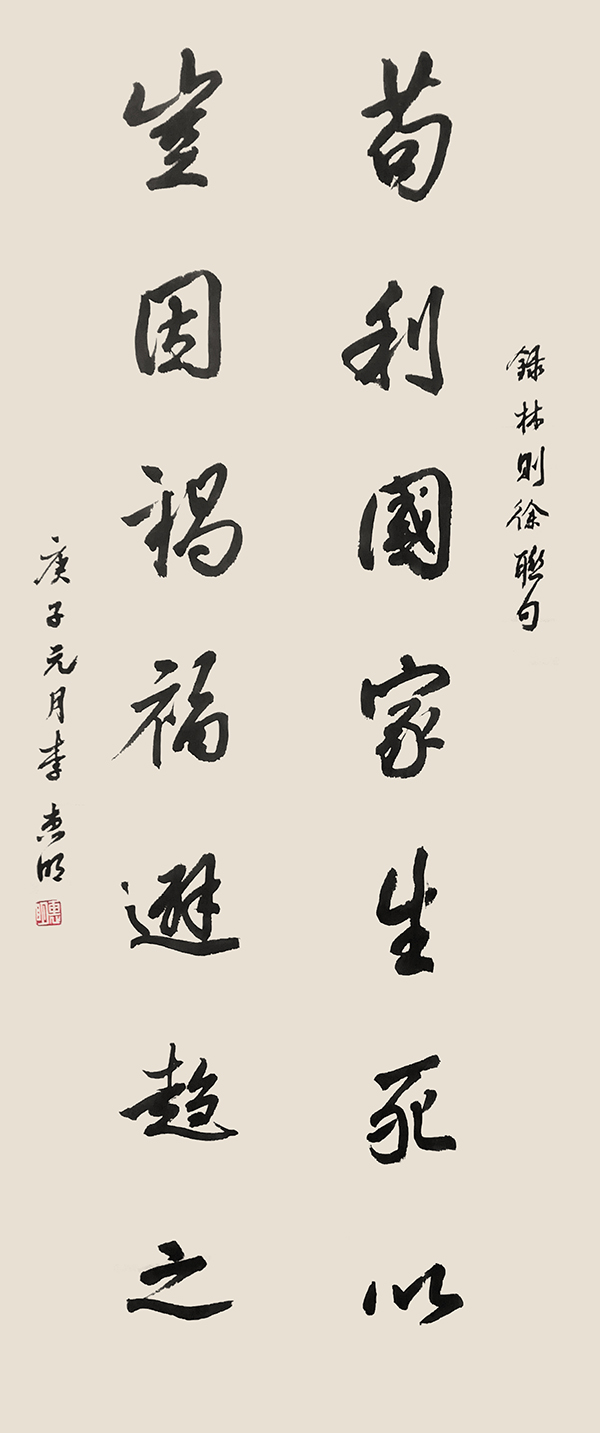 録林則徐聯句
苟利國家生死以
豈因禍福避趨之
庚子元月李惠明
惠明